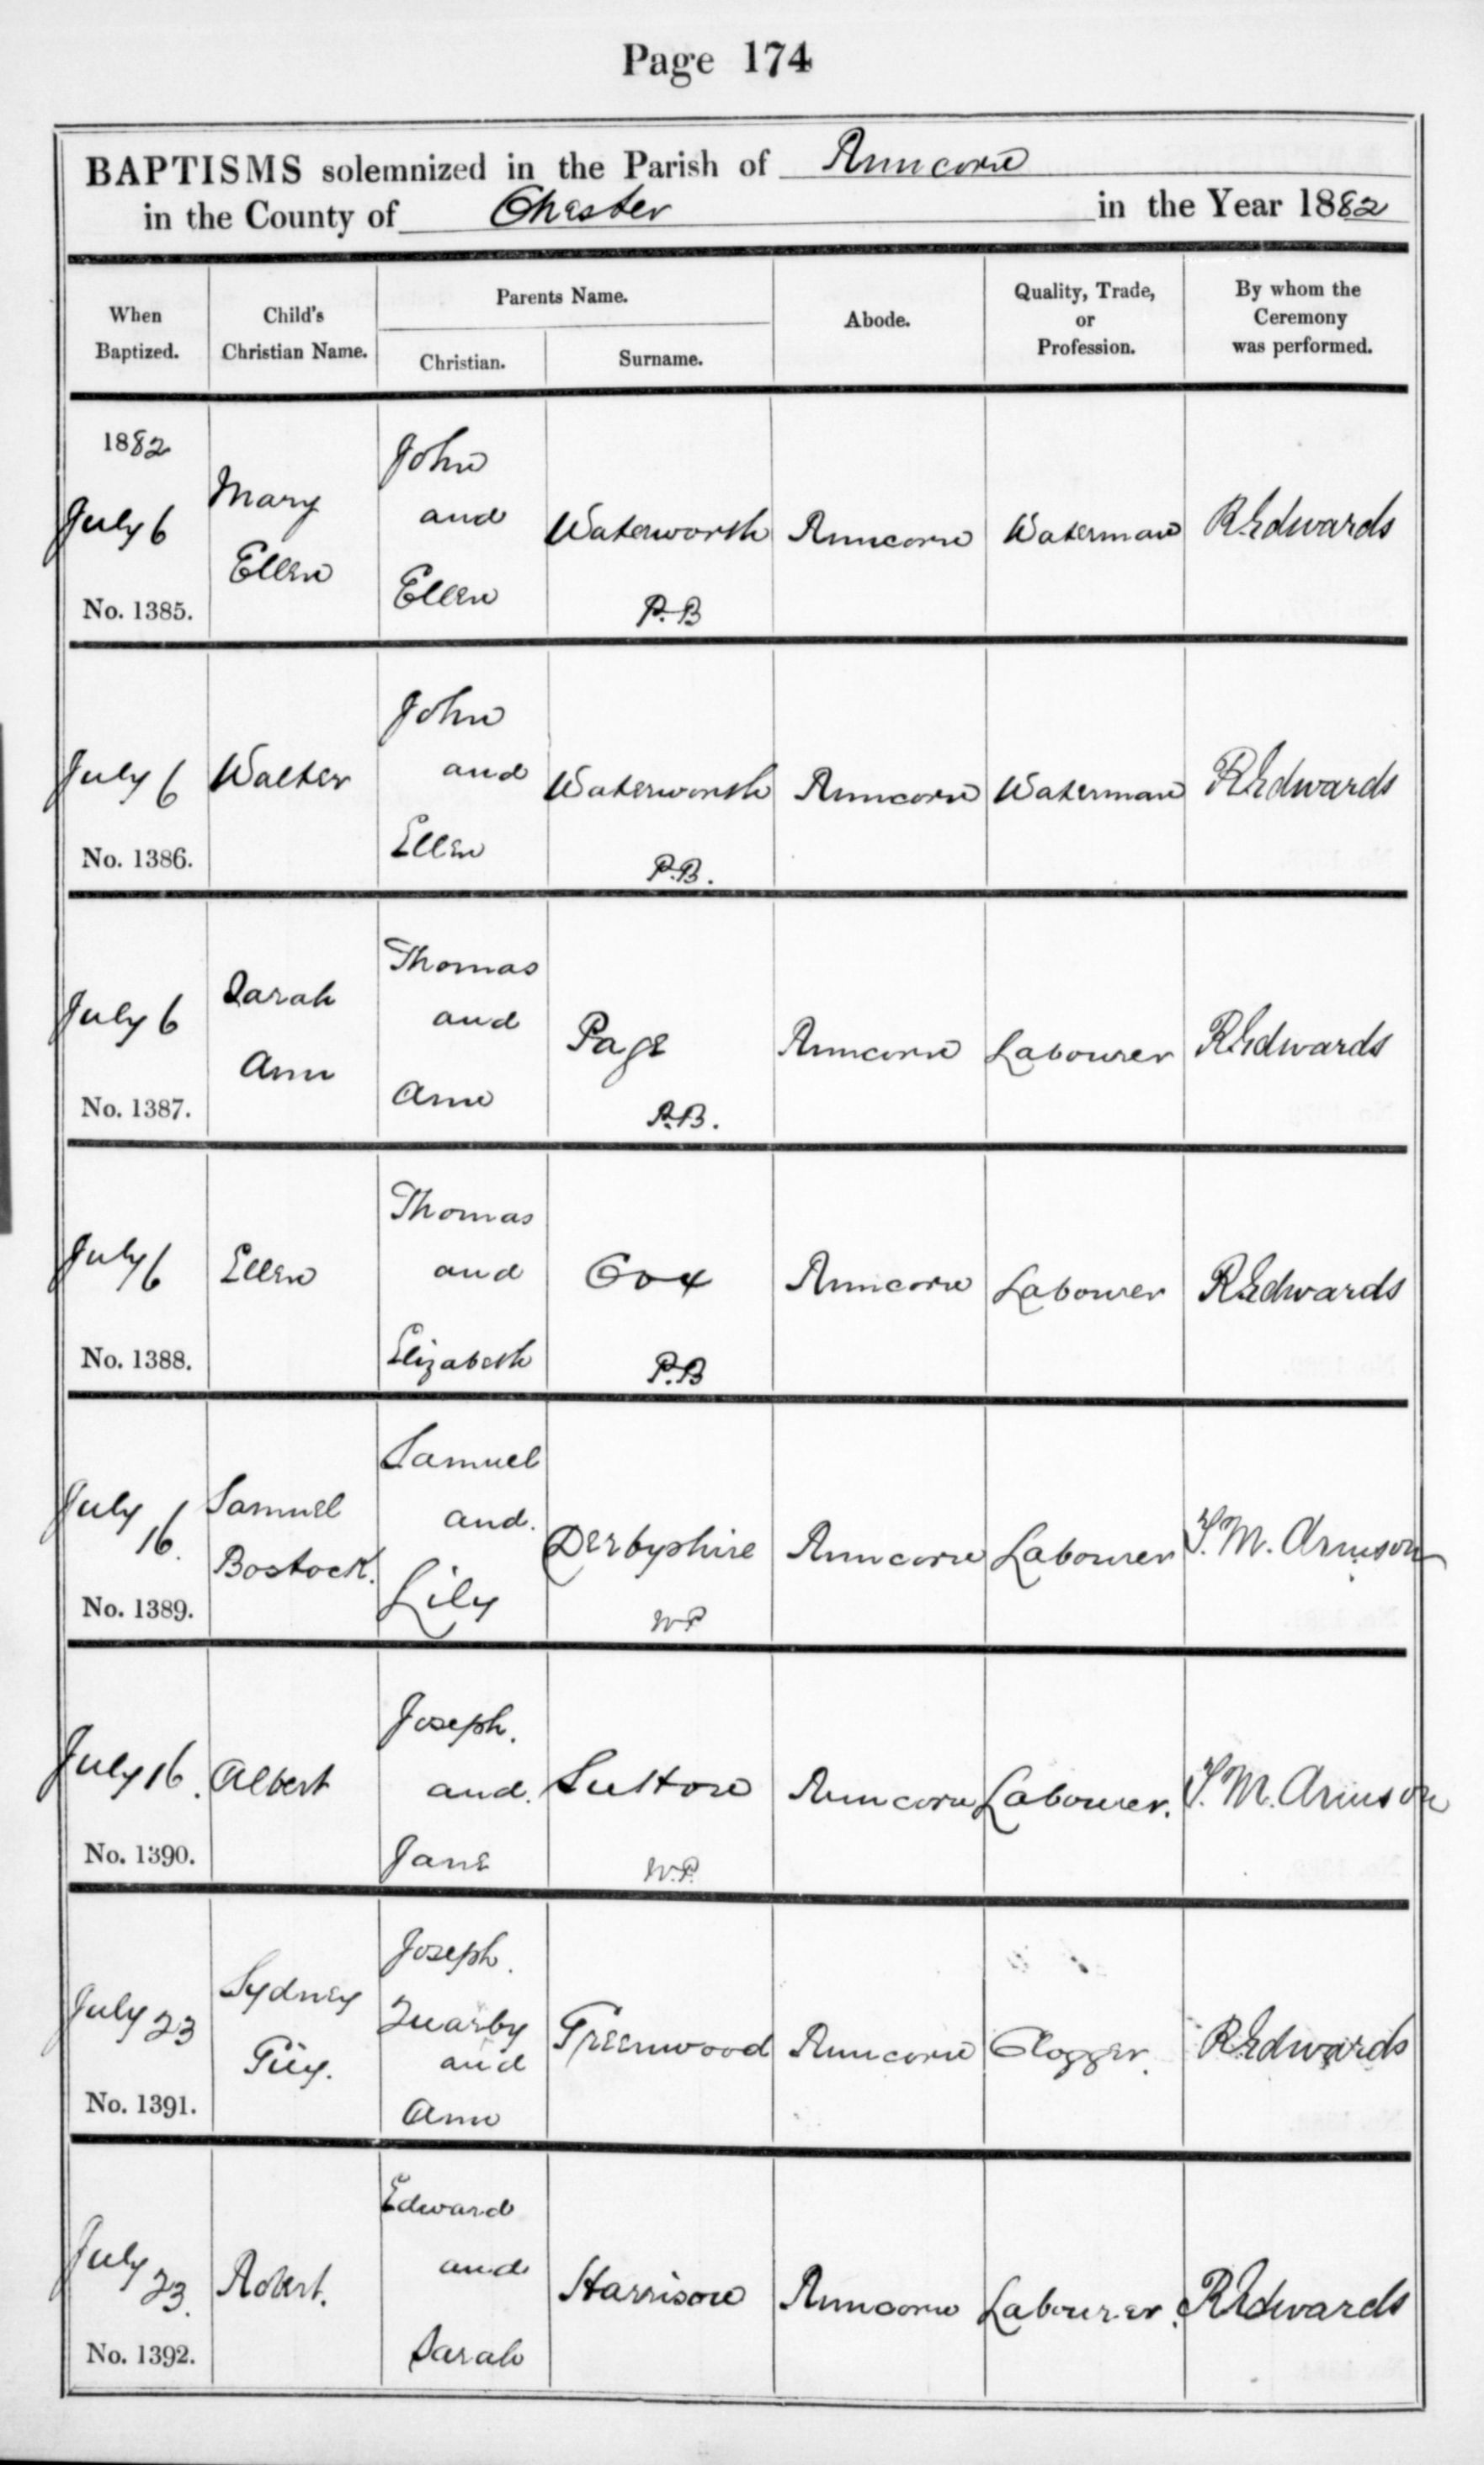 Page 174
BAPTISMS solemnized in the Parish of Runcorn
in the County of Chester in the Year 1882
When Baptized.
Child's Christian Name.
Parents Name.
Christian.
Surname.
Abode.
Quality, Trade, or Profession.
By whom the Ceremony was performed.
1882
July 6
No. 1385.
Mary
Ellen
John
and
Ellen
Waterworth
P.B
Runcorn
Waterman
R Edwards
July 6
No. 1386.
Walter
John
and
Ellen
Waterworth
P.B.
Runcorn
Waterman
R Edwards
July 6
No. 1387.
Sarah
Ann
Thomas
and
Ann
Page
P.B.
Runcorn
Labourer
R Edwards
July 6
No. 1388.
Ellen
Thomas
and
Elizabeth
Cox
P.B
Runcorn
Labourer
R Edwards
July
16.
No. 1389.
Samuel
Bostock.
Samuel
and.
Lily
Derbyshire
W P
Runcorn
Labourer
M. Arnison
July 16.
No. 1390.
Albert
Joseph.
and.
Jane
Sutton
W.P.
Runcorn
Labourer.
M. Arnison
July 23
No. 1391.
Sydney
Guy.
Joseph.
Quarby
and
Ann
Greenwood
Runcorn
Clogger.
R Edwards
July
23.
No. 1392.
Robert.
Edward
and
Sarah
Harrison
Runcorn
Labourer.
R Edwards